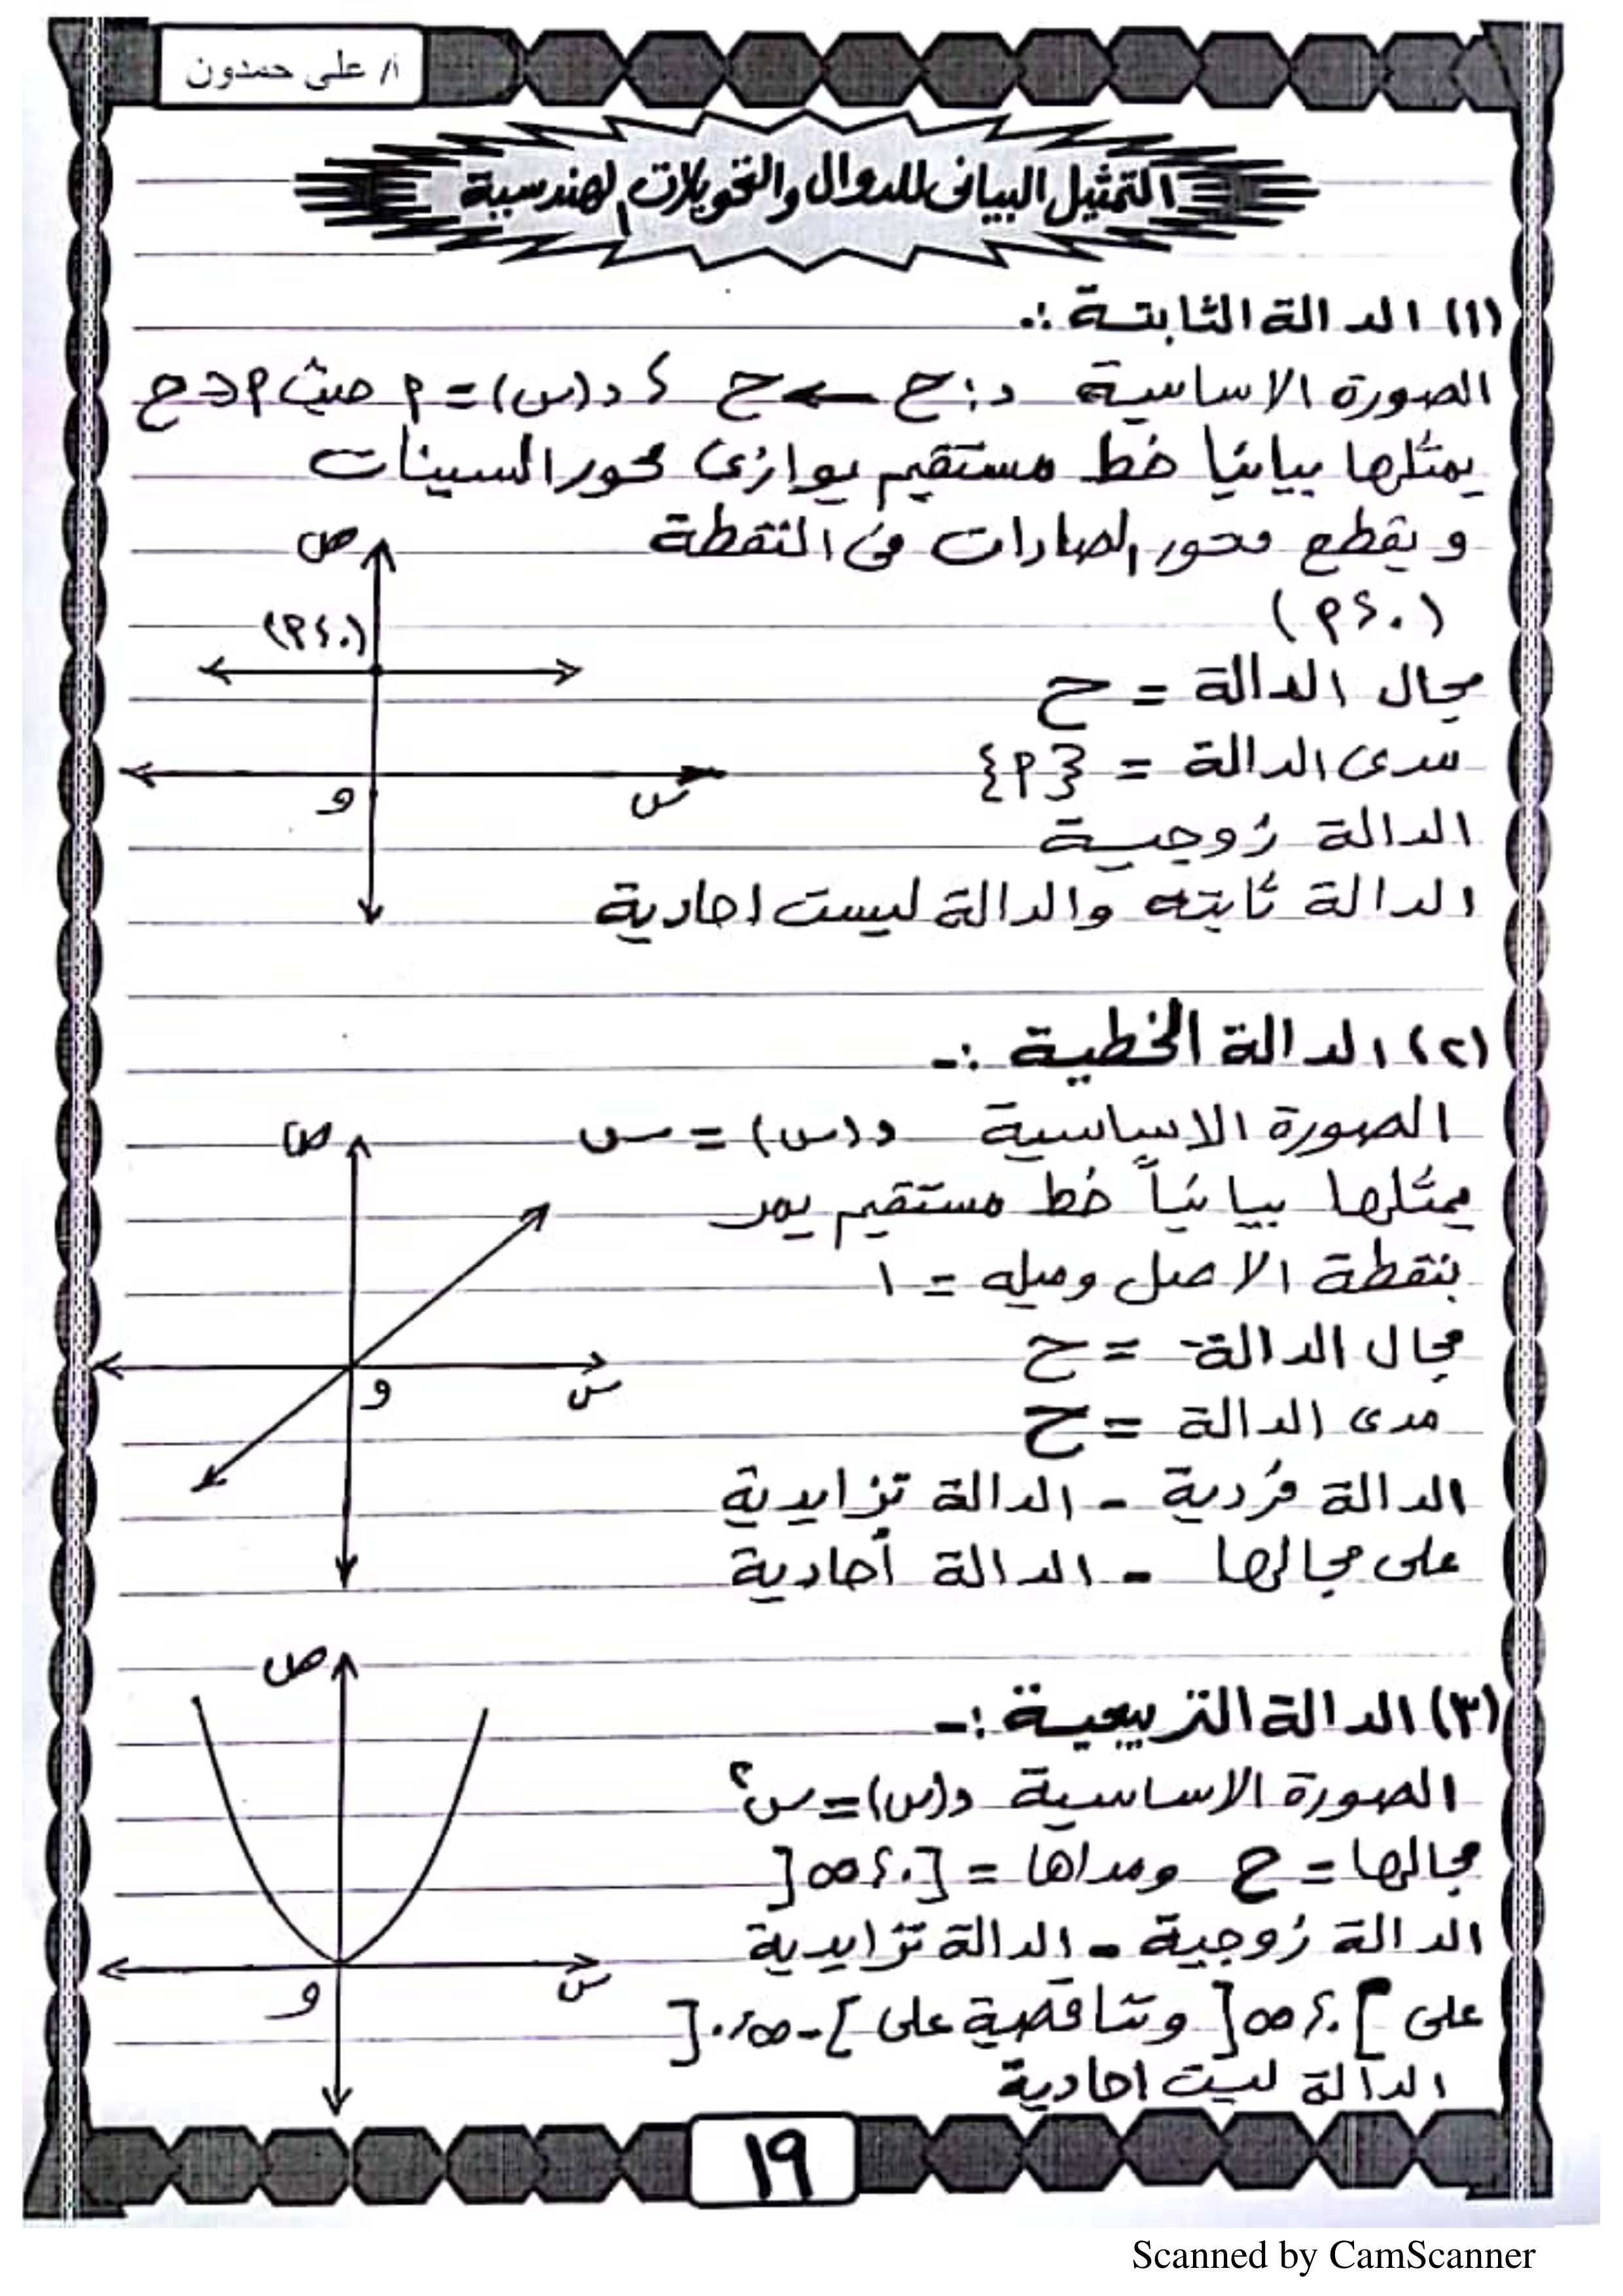 أ/ على حمدون
التمثيل البيانى للدوال والتحويلات الهندسية
(١) الدالة الثابتة :ـ
الصورة الاساسية د : ح ← ح ، د(س) = م حيث م ∈ ح
يمثلها بيانيا خط مستقيم يوازى محور السينات
و يقطع محور الصادات فى النقطة
(٠ ، م)
مجال الدالة = ح
مدى الدالة = {م}
الدالة زوجية
الدالة ثابته والدالة ليست احادية
ص
(٠ ، م)
و
س
(٢) الدالة الخطية :ـ
الصورة الاساسية د(س) = س
يمثلها بيانياً خط مستقيم يمر
بنقطة الاصل وميله = ١
مجال الدالة = ح
مدى الدالة = ح
الدالة فردية - الدالة تزايدية
على مجالها - الدالة أحادية
ص
و
س
(٣) الدالة التربيعية :ـ
الصورة الاساسية د(س) = س٢
مجالها = ح ومداها = [٠ ، ∞[
الدالة زوجية - الدالة تزايدية
على ]٠ ، ∞[ وتناقصية على ]-∞ ، ٠[
الدالة ليست احادية
ص
و
س
١٩
Scanned by CamScanner